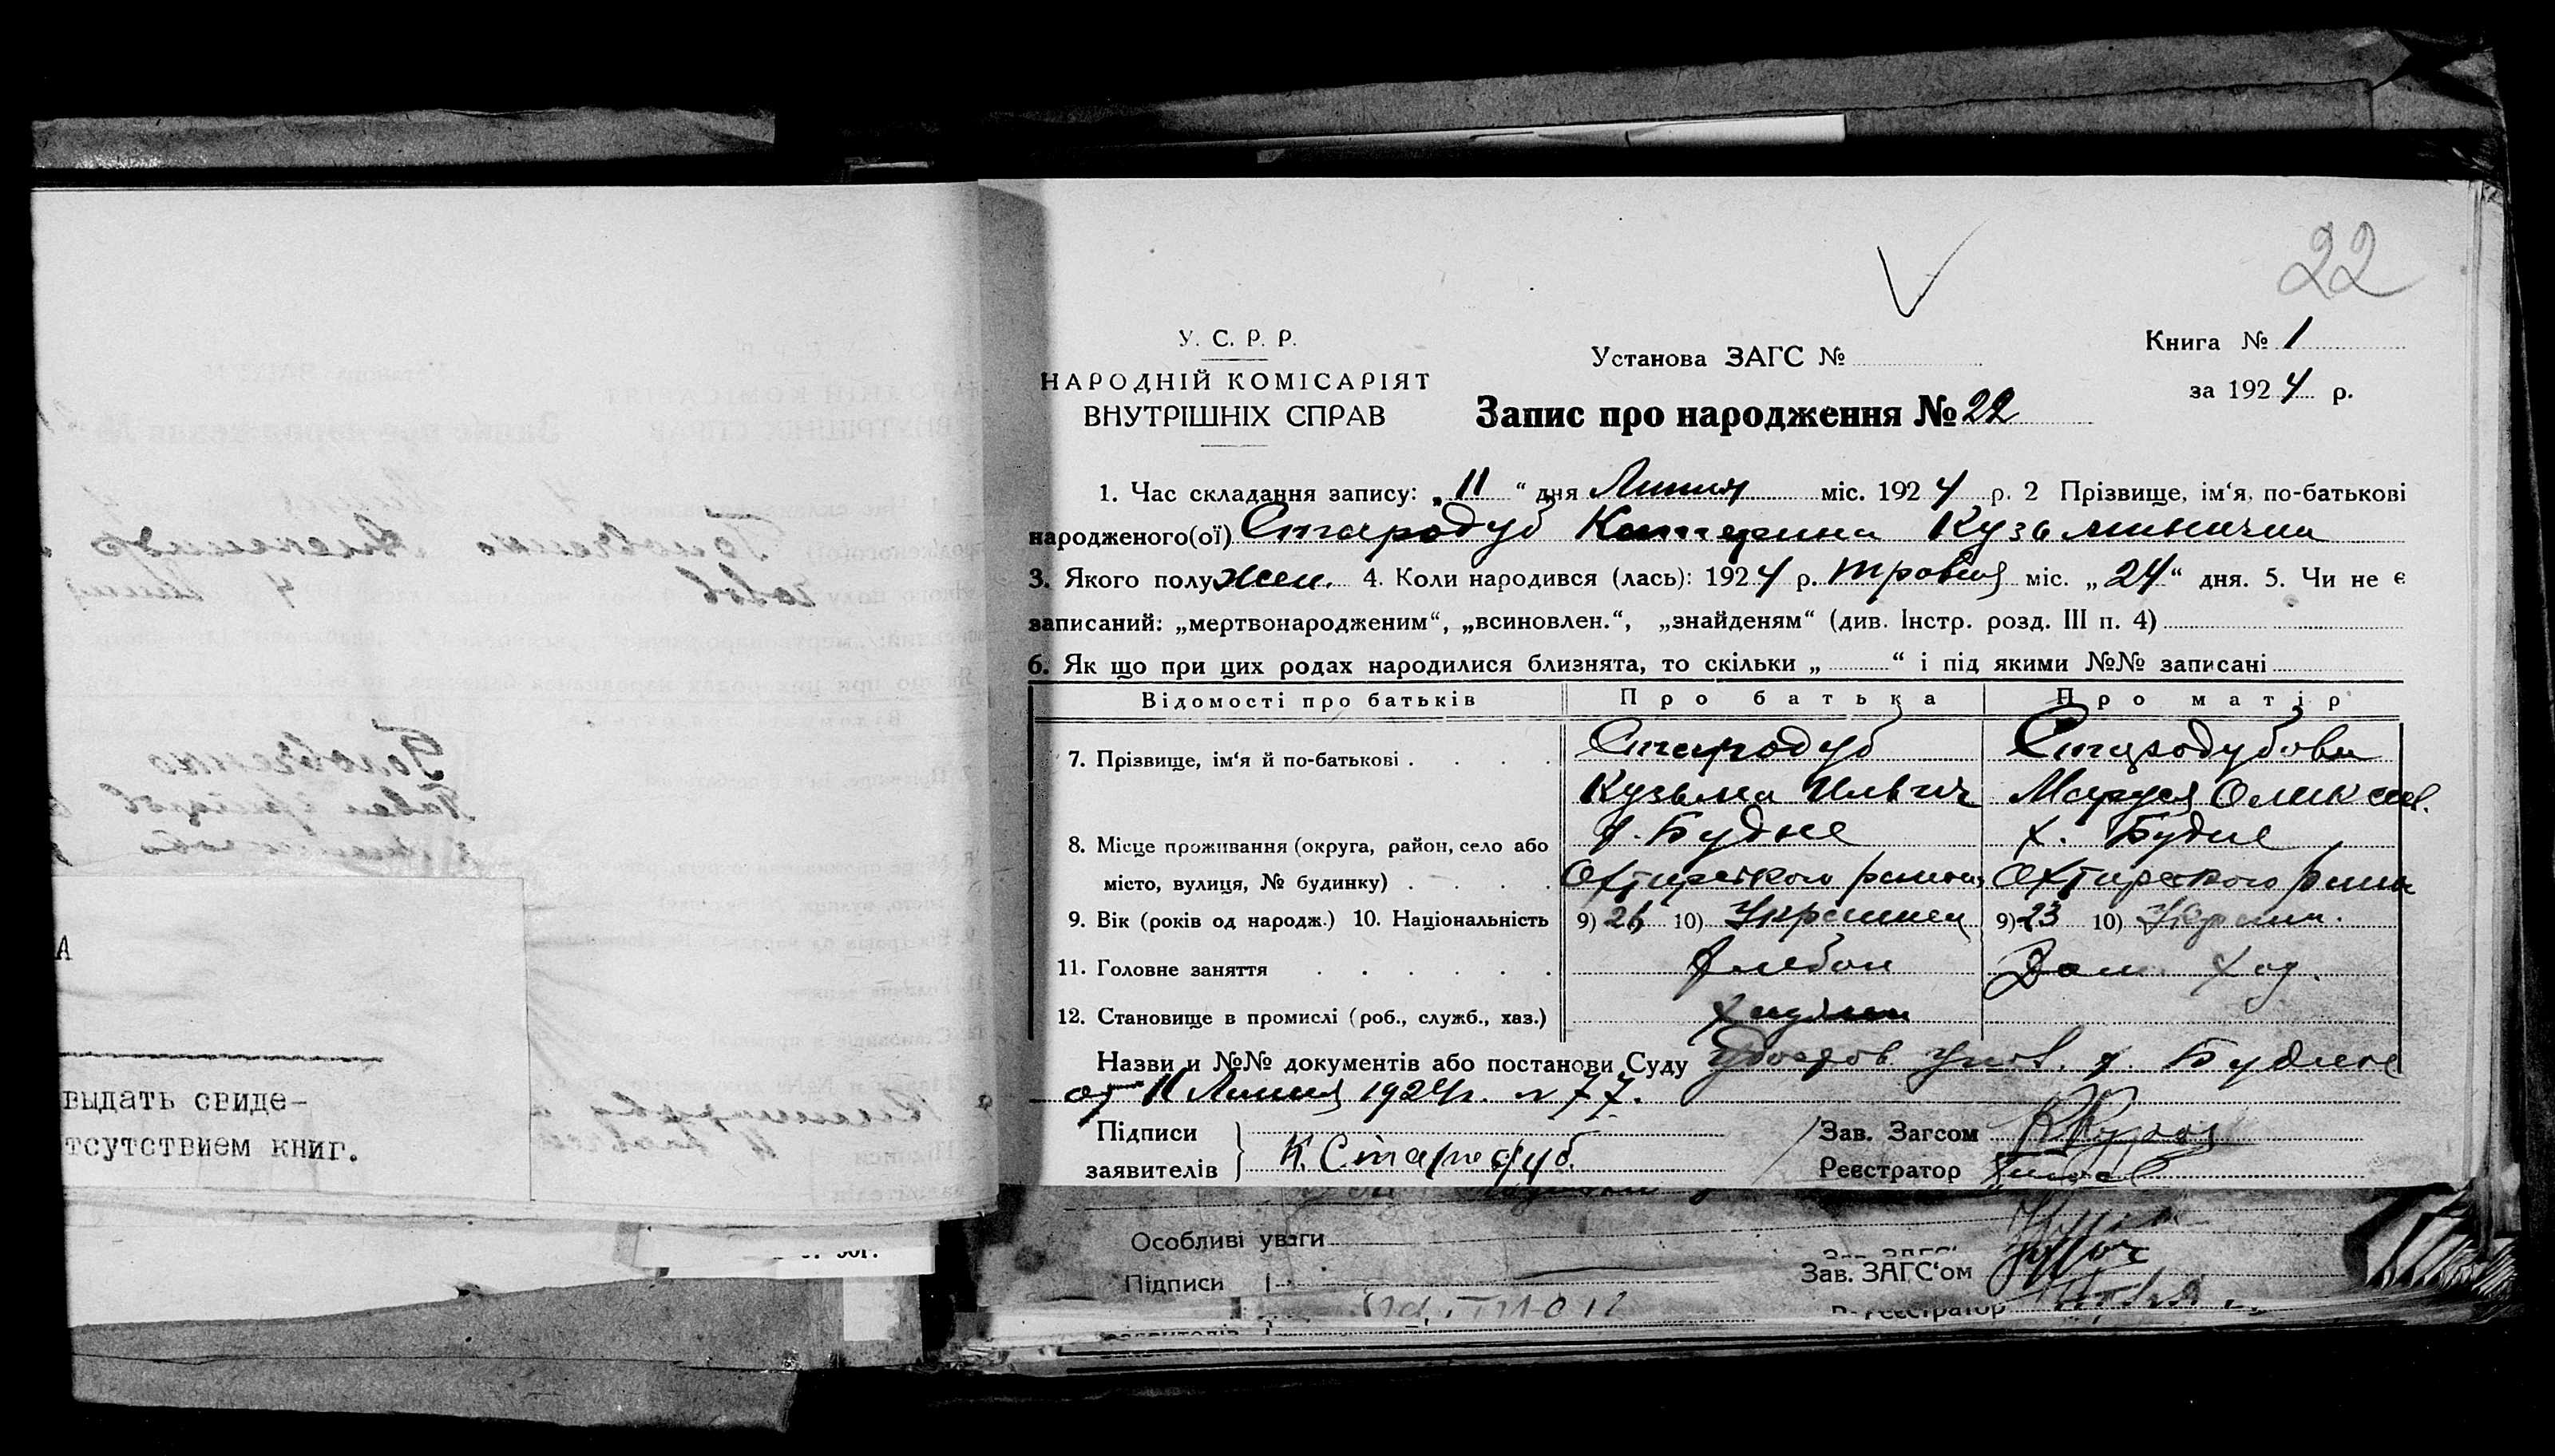 22
У. С. Р. Р.
НАРОДНІЙ КОМІСАРІЯТ
ВНУТРІШНІХ СПРАВ
Установа ЗАГС №
Книга № 1
за 1924 р.
Запис про народження № 22
1. Час складання запису: „11“ дня Липня міс. 1924 р. 2 Прізвище, ім‘я, по-батькові
народженого(ої) Стародуб Катерина Кузьминична
3. Якого полу жен. 4. Коли народився (лась): 1924 р. травня міс. „24“ дня. 5. Чи не є
записаний: „мертвонародженим“, „всиновлен.“, „знайденям“ (див. Інстр. розд. III п. 4)
6. Як що при цих родах народилися близнята, то скільки „ “ і під якими №№ записані
Відомості про батьків Про батька Про матір
7. Прізвище, ім‘я й по-батькові Стародуб Стародубова
Кузьма Ильич Маруся Олексіев.
8. Місце проживання (округа, район, село або х. Будне х. Будне
місто, вулиця, № будинку) Охтирського района Охтирского района
9. Вік (років од народж.) 10. Національність 9) 26 10) Украинец 9) 23 10) Украин.
11. Головне заняття Хлебоп Дом. Хоз.
12. Становище в промислі (роб., служб., хаз.)
Назви и №№ документів або постанови Суду Удостов х. Будного
от 11 Липня 1924 р. № 77.
Підписи
заявителів К. Стародуб.
Зав. Загсом
Реєстратор
Особливі уваги
Підписи
Зав. ЗАГС‘ом
Реєстратор
А
выдать свиде-
тсутствием книг.